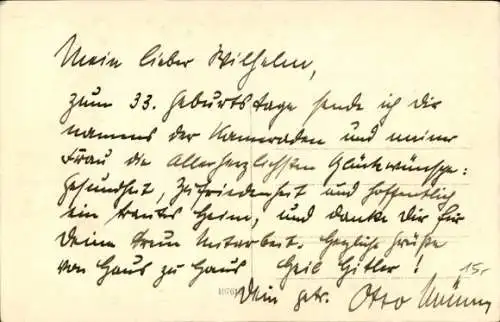 Mein lieber Wilhelm,
zum 33. Geburtstage sende ich Dir
namens der Kameraden und meiner
Frau die allerherzlichsten Glückwünsche:
Gesundheit, Zufriedenheit und hoffentlich
ein trautes Heim, und danke Dir für
Deine treue Mitarbeit. Herzliche Grüße
von Haus zu Haus Heil Hitler! 15,-
Dein getr. Otto